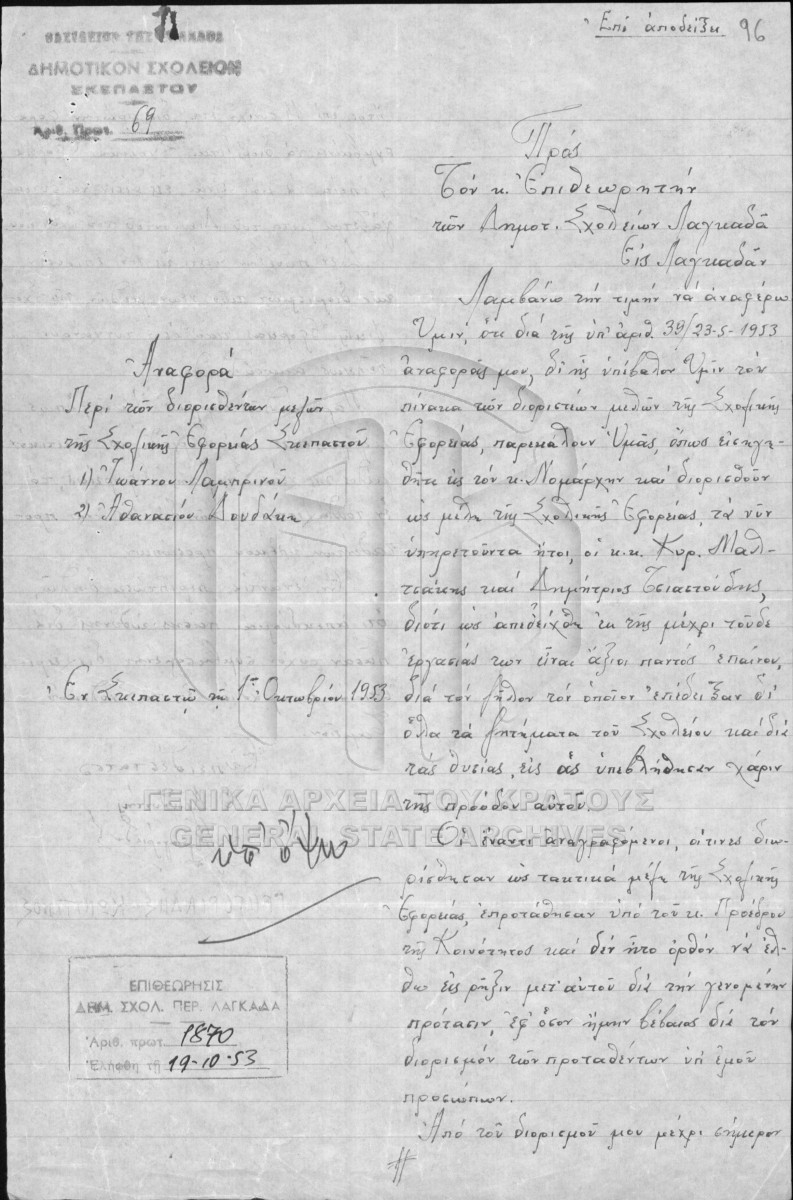 Ἐπὶ ἀποδείξει 96
ΒΑΣΙΛΕΙΟΝ ΤΗΣ ΕΛΛΑΔΟΣ
ΔΗΜΟΤΙΚΟΝ ΣΧΟΛΕΙΟΝ
ΣΚΕΠΑΣΤΟΥ
Ἀριθ. Πρωτ. 69
Πρὸς
Τὸν κ. Ἐπιθεωρητὴν
τῶν Δημοτ. Σχολείων Λαγκαδᾶ
Εἰς Λαγκαδᾶν
Ἀναφορά
Περὶ τῶν διορισθέντων μελῶν
τῆς Σχολικῆς Ἐφορείας Σκεπαστοῦ
1) Ἰωάννου Λαμπρινοῦ
2) Ἀθανασίου Δουδάκη
Ἐν Σκεπαστῷ τῇ 1ῃ Ὀκτωβρίου 1953
Λαμβάνω τὴν τιμὴν νὰ ἀναφέρω
Ὑμῖν, ὅτι διὰ τῆς ὑπ' ἀριθ. 39/23-5-1953
ἀναφορᾶς μου, δι' ἧς ὑπέβαλον Ὑμῖν τὸν
πίνακα τῶν διοριστέων μελῶν τῆς Σχολικῆς
Ἐφορείας, παρεκάλουν Ὑμᾶς, ὅπως εἰσηγη-
θῆτε εἰς τὸν κ. Νομάρχην καὶ διορισθοῦν
ὡς μέλη τῆς Σχολικῆς Ἐφορείας, τὰ νῦν
ὑπηρετοῦντα ἤτοι, οἱ κ.κ. Κυρ. Μαλ-
τσάκης καὶ Δημήτριος Τσιαστούδης,
διότι ὡς ἀπεδείχθη ἐκ τῆς μέχρι τοῦδε
ἐργασίας των εἶναι ἄξιοι παντὸς ἐπαίνου,
διὰ τὸν ζῆλον τὸν ὁποῖον ἐπέδειξαν δι'
ὅλα τὰ ζητήματα τοῦ Σχολείου καὶ διὰ
τὰς θυσίας, εἰς ἃς ὑπεβλήθησαν χάριν
τῆς προόδου αὐτοῦ.
Οἱ ἔναντι ἀναγραφόμενοι, οἵτινες διω-
ρίσθησαν ὡς τακτικὰ μέλη τῆς Σχολικῆς
Ἐφορείας, ἐπροτάθησαν ὑπὸ τοῦ κ. Προέδρου
τῆς Κοινότητος καὶ δὲν ἦτο ὀρθὸν νὰ ἔλ-
θω εἰς ρῆξιν μετ' αὐτοῦ διὰ τὴν γενομένην
πρότασιν, ἐφ' ὅσον ἤμην βέβαιος διὰ τὸν
διορισμὸν τῶν προταθέντων ὑπ' ἐμοῦ
προσώπων.
Ἀπὸ τοῦ διορισμοῦ μου μέχρι σήμερον
ΓΕΝΙΚΑ ΑΡΧΕΙΑ ΤΟΥ ΚΡΑΤΟΥΣ
GENERAL STATE ARCHIVES
ὑπ' ὄψιν
ΕΠΙΘΕΩΡΗΣΙΣ
ΔΗΜ. ΣΧΟΛ. ΠΕΡ. ΛΑΓΚΑΔΑ
Ἀριθ. πρωτ. 1870
Ἐλήφθη τῇ 19-10-53